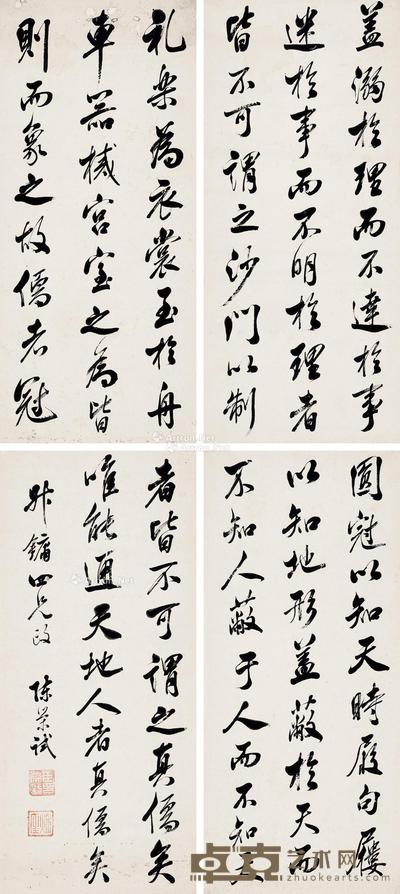 盖溺於理而不達於事
迷於事而不明於理者
皆不可謂之沙門以制
礼樂為衣裳至於舟
車器械宮室之為皆
則而象之故儒者冠
圓冠以知天時履句屨
以知地形盖蔽於天而
不知人蔽于人而不知天
者皆不可謂之真儒矣
唯能通天地人者真儒矣
叔鏞四兄政 陳景試
卓克艺术网